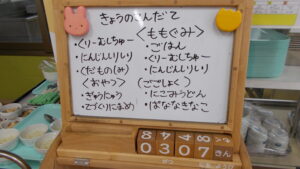 きょうのこんだて
・くりーむしちゅー
・にんじんしりしり
(くだもの(み)
<おやつ>
・ぎゅうにゅう
・てづくりにまめ
<ももぐみ>
・ごはん
・くりーむしちゅー
・にんじんしりしり
(ごごしょく)
・にこみうどん
・ばななきなこ
8 0 4 8 7
0 3 0 7 きん